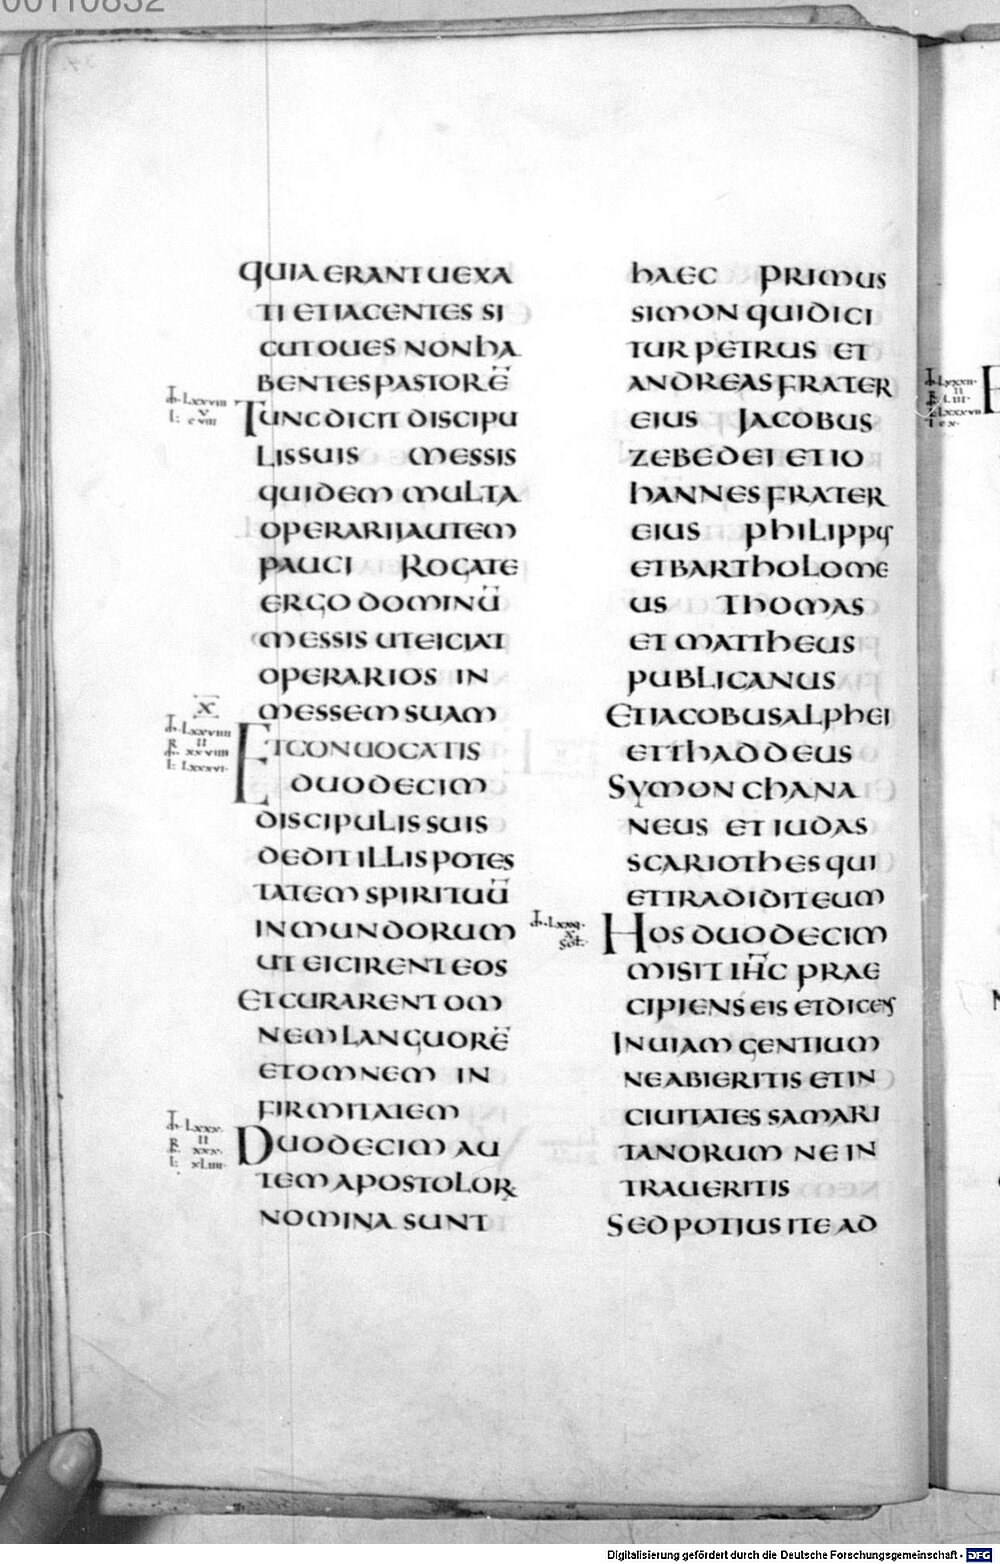 00110832
QUIA ERANT UEXA
TI ET IACENTES SI
CUT OUES NON HA
BENTES PASTORĒ
TUNC DICIT DISCIPU
LIS SUIS MESSIS
QUIDEM MULTA
OPERARII AUTEM
PAUCI ROGATE
ERGO DOMINŪ
MESSIS UT EICIAT
OPERARIOS IN
MESSEM SUAM
X
ET CONUOCATIS
DUODECIM
DISCIPULIS SUIS
DEDIT ILLIS POTES
TATEM SPIRITUŪ
INMUNDORUM
UT EICIRENT EOS
ET CURARENT OM
NEM LANGUORĒ
ET OMNEM IN
FIRMITATEM
DUODECIM AU
TEM APOSTOLOR
NOMINA SUNT
HAEC PRIMUS
SIMON QUI DICI
TUR PETRUS ET
ANDREAS FRATER
EIUS IACOBUS
ZEBEDEI ET IO
HANNES FRATER
EIUS PHILIPPUS
ET BARTHOLOME
US THOMAS
ET MATTHEUS
PUBLICANUS
ET IACOBUS ALPHEI
ET THADDEUS
SYMON CHANA
NEUS ET IUDAS
SCARIOTHES QUI
ET TRADIDIT EUM
HOS DUODECIM
MISIT IH̄C PRAE
CIPIENS EIS ET DICENS
IN UIAM GENTIUM
NE ABIERITIS ET IN
CIUITATES SAMARI
TANORUM NE IN
TRAUERITIS
SED POTIUS ITE AD
Digitalisierung gefördert durch die Deutsche Forschungsgemeinschaft - DFG